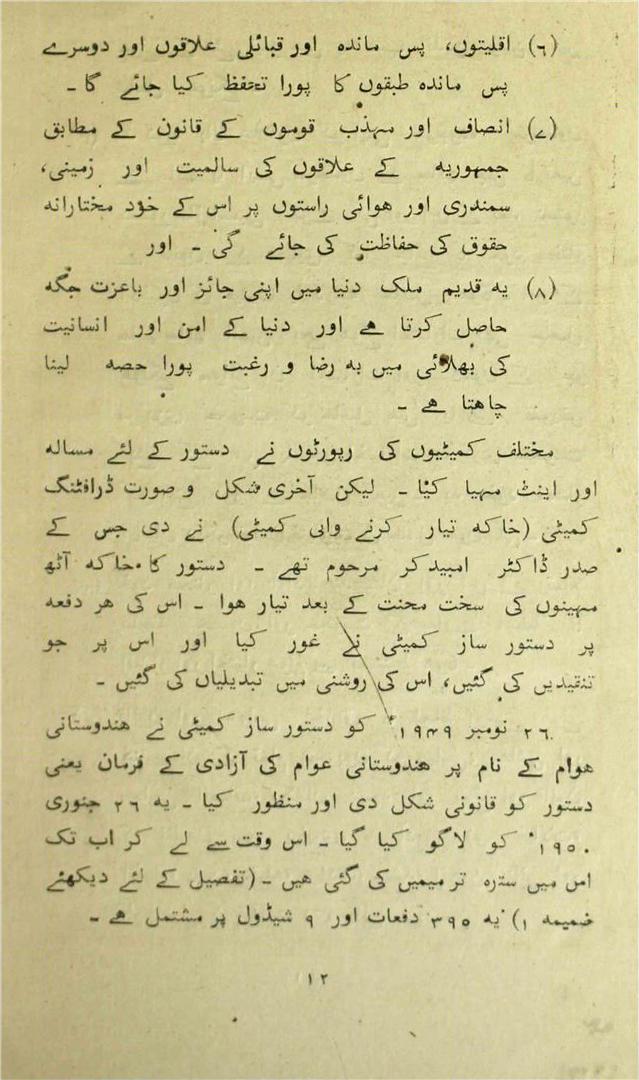 (۶) اقلیتوں، پس ماندہ اور قبائلی علاقوں اور دوسرے
پس ماندہ طبقوں کا پورا تحفظ کیا جائے گا ۔
(۷) انصاف اور مہذب قوموں کے قانون کے مطابق
جمہوریہ کے علاقوں کی سالمیت اور زمینی،
سمندری اور ہوائی راستوں پر اس کے خود مختارانہ
حقوق کی حفاظت کی جائے گی ۔ اور
(۸) یہ قدیم ملک دنیا میں اپنی جائز اور باعزت جگہ
حاصل کرتا ہے اور دنیا کے امن اور انسانیت
کی بھلائی میں بہ رضا و رغبت پورا حصہ لینا
چاہتا ہے ۔
مختلف کمیٹیوں کی رپورٹوں نے دستور کے لئے مسالہ
اور اینٹ مہیا کیا ۔ لیکن آخری شکل و صورت ڈرافٹنگ
کمیٹی (خاکہ تیار کرنے والی کمیٹی) نے دی جس کے
صدر ڈاکٹر امبیدکر مرحوم تھے ۔ دستور کا خاکہ آٹھ
مہینوں کی سخت محنت کے بعد تیار ہوا ۔ اس کی ہر دفعہ
پر دستور ساز کمیٹی نے غور کیا اور اس پر جو
تنقیدیں کی گئیں، اس کی روشنی میں تبدیلیاں کی گئیں ۔
۲۶ نومبر ۱۹۴۹ء کو دستور ساز کمیٹی نے ہندوستانی
عوام کے نام پر ہندوستانی عوام کی آزادی کے فرمان یعنی
دستور کو قانونی شکل دی اور منظور کیا ۔ یہ ۲۶ جنوری
۱۹۵۰ء کو لاگو کیا گیا ۔ اس وقت سے لے کر اب تک
اس میں سترہ ترمیمیں کی گئی ہیں ۔ (تفصیل کے لئے دیکھئے
ضمیمہ ۱) یہ ۳۹۵ دفعات اور ۹ شیڈول پر مشتمل ہے ۔
۱۲